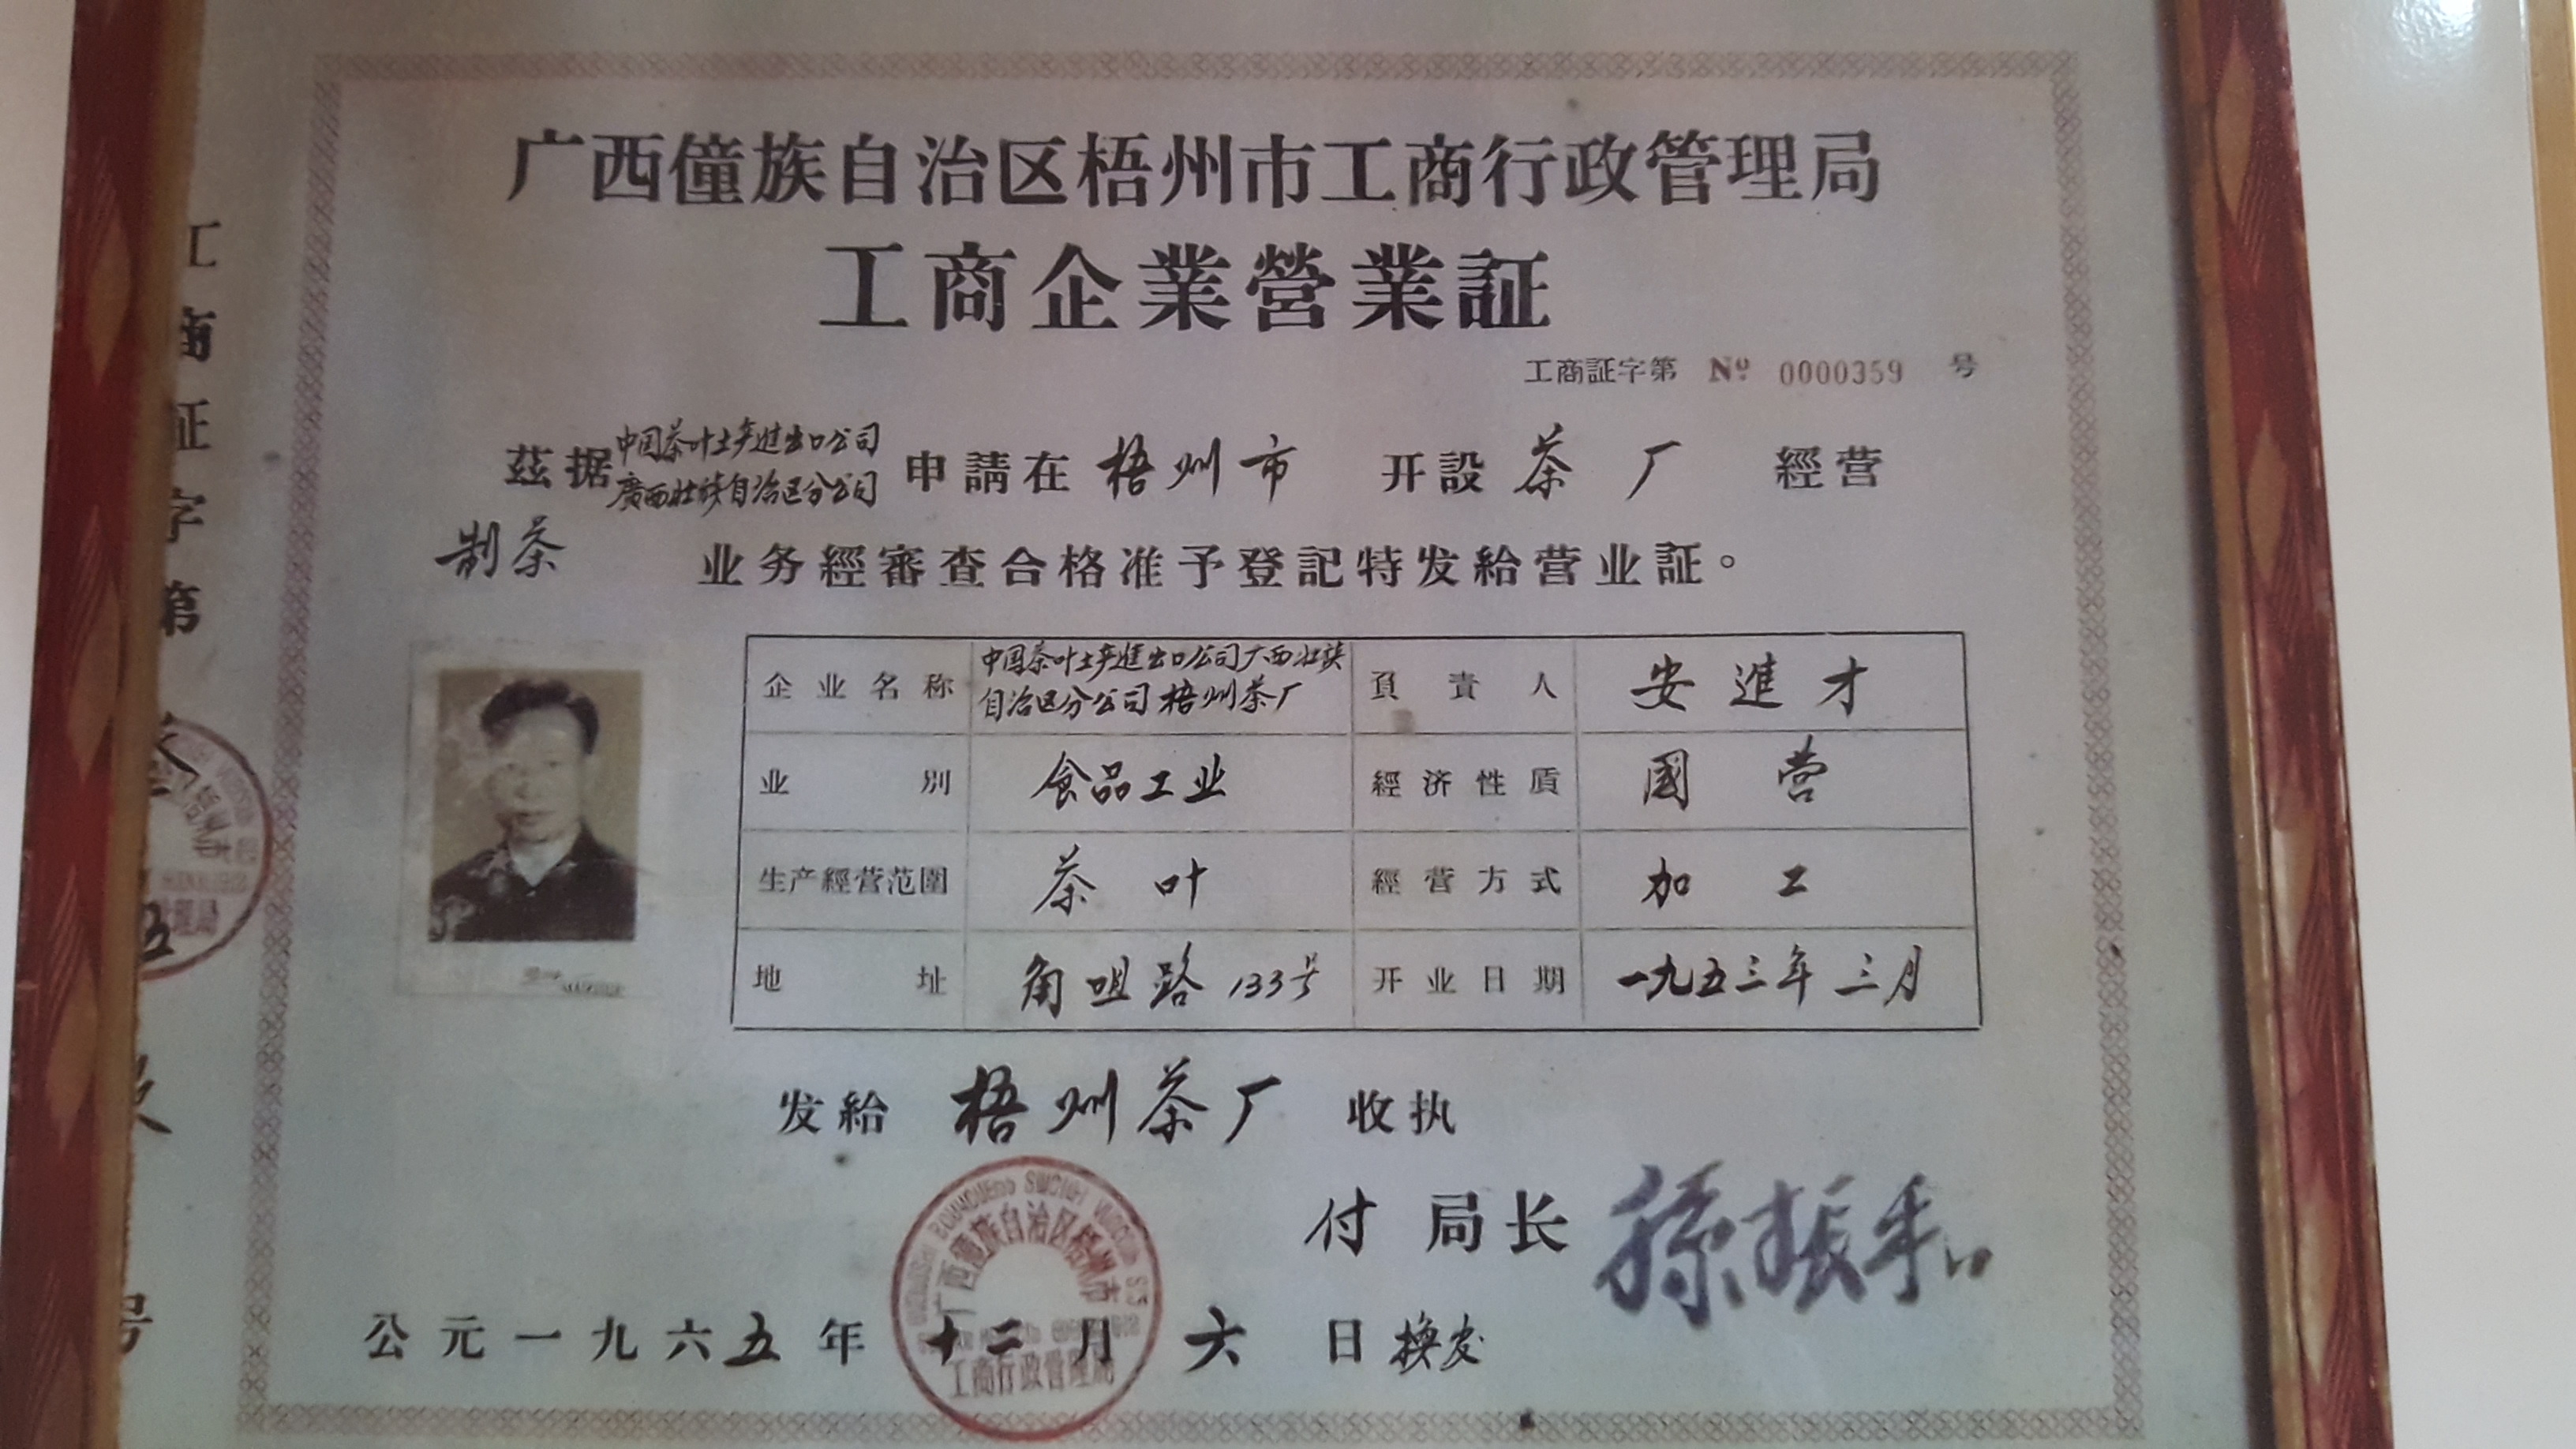 广西僮族自治区梧州市工商行政管理局
工商企業營業証
工商証字第 № 0000359 号
茲据中国茶叶土产进出口公司廣西壮族自治区分公司申請在 梧州市 开設 茶厂 經营
制茶 业务經審查合格准予登記特发給营业証。
企业名称 中国茶叶土产进出口公司广西壮族自治区分公司梧州茶厂 負責人 安進才
业別 食品工业 經济性質 國营
生产經营范圍 茶叶 經营方式 加工
地址 角咀路133号 开业日期 一九五三年三月
发給 梧州茶厂 收执
付局长 孫振和
公元一九六五年十二月六日换发
广西僮族自治区梧州市
工商行政管理局
工商证字第
号